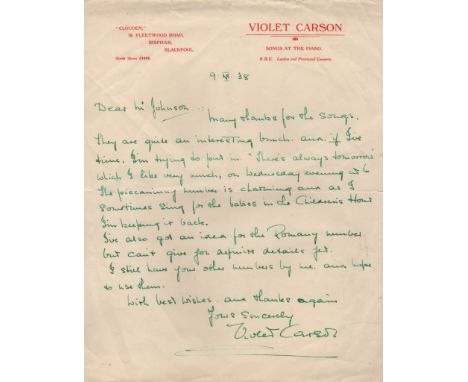 "CLOUDEN,"
VIOLET CARSON
FLEETWOOD ROAD,
BISPHAM,
SONGS AT THE PIANO.
BLACKPOOL.
North Shore
B.B.C. London and Provincial Concerts.
38
Dear Mr Johnson
Many thanks for the songs.
They are quite an interesting bunch. and if I've
time, I'm trying to put in "There's always tomorrow"
which I like very much, on Wednesday evening at 6
The piccaninny number is charming and as I
sometimes sing for the babies in the Children's Hour
I'm keeping it back.
I've also got an idea for the Romany number
but can't give you definite details yet.
I still have your other numbers by me. and hope
to use them.
With best wishes. and thanks again
Yours Sincerely
Violet Carson